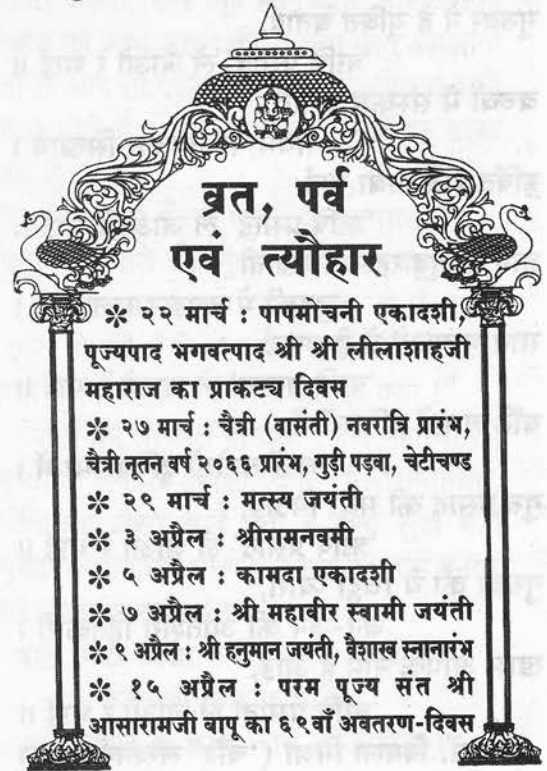 व्रत, पर्व
एवं त्यौहार
❋ २२ मार्च : पापमोचनी एकादशी,
पूज्यपाद भगवत्पाद श्री श्री लीलाशाहजी
महाराज का प्राकट्य दिवस
❋ २७ मार्च : चैत्री (वासंती) नवरात्रि प्रारंभ,
चैत्री नूतन वर्ष २०६६ प्रारंभ, गुड़ी पड़वा, चेटीचण्ड
❋ २९ मार्च : मत्स्य जयंती
❋ ३ अप्रैल : श्रीरामनवमी
❋ ५ अप्रैल : कामदा एकादशी
❋ ७ अप्रैल : श्री महावीर स्वामी जयंती
❋ ९ अप्रैल : श्री हनुमान जयंती, वैशाख स्नानारंभ
❋ १५ अप्रैल : परम पूज्य संत श्री
आसारामजी बापू का ६९वाँ अवतरण-दिवस